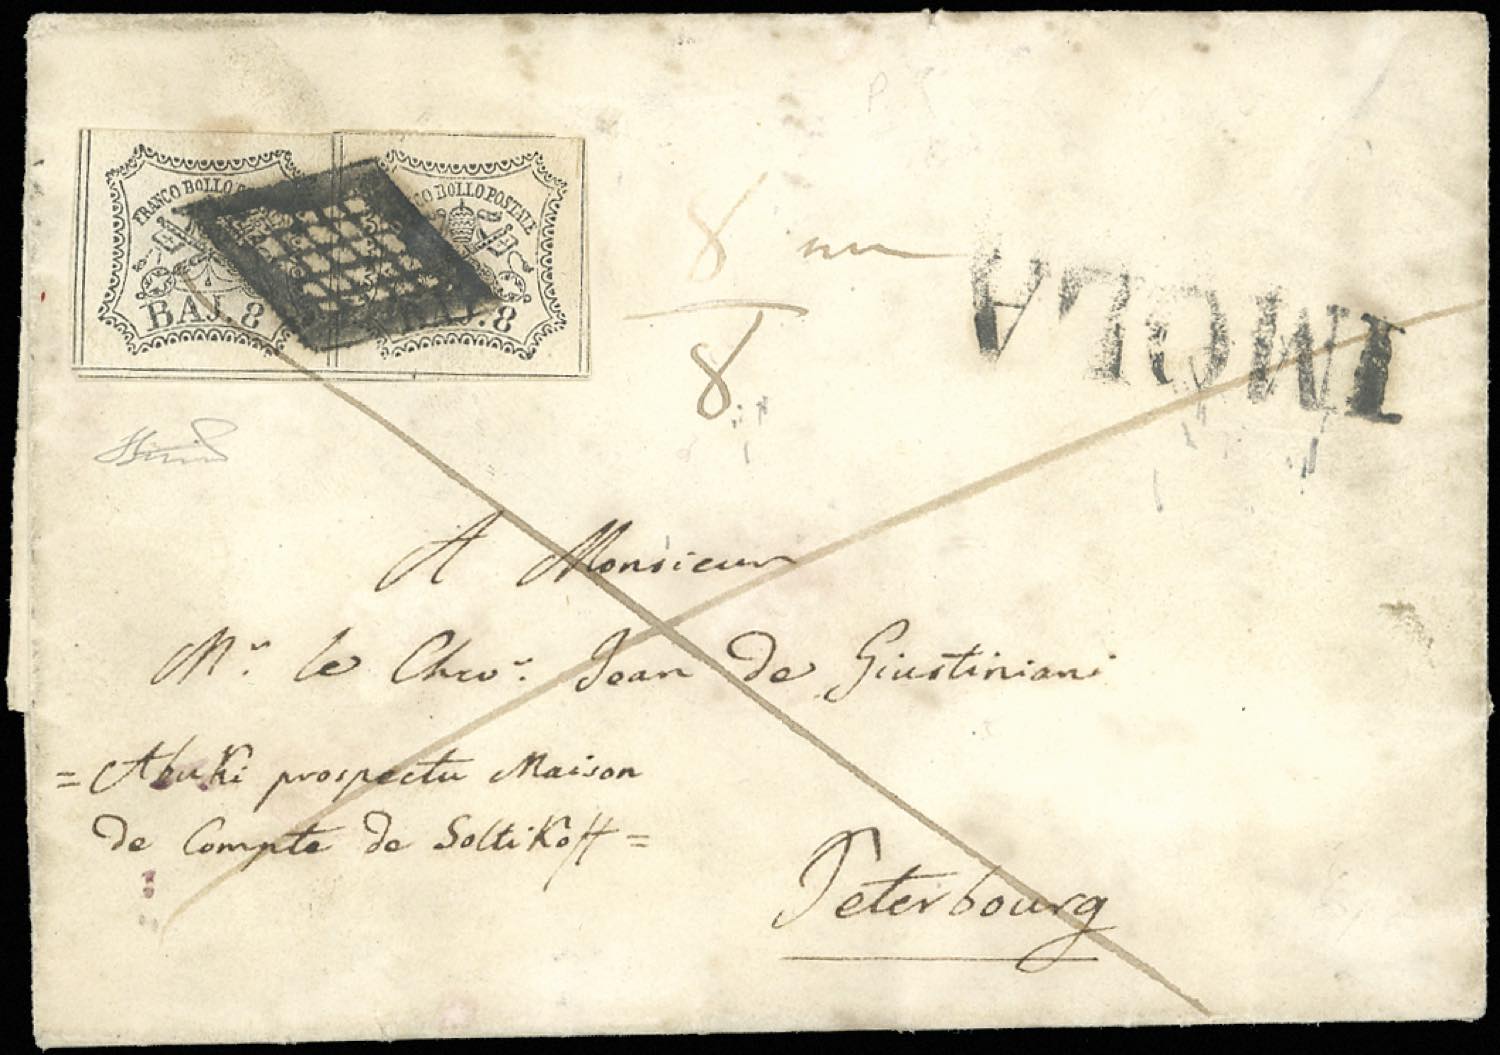 FRANCO BOLLO
BAJ. 8
CO BOLLO POSTALE
BAJ. 8
8
8
IMOLA
A Monsieur
Mr. le Chev.r Jean de Giustiniani
= Abuki prospectu Maison
de Compte de Soltikoff =
Peterbourg